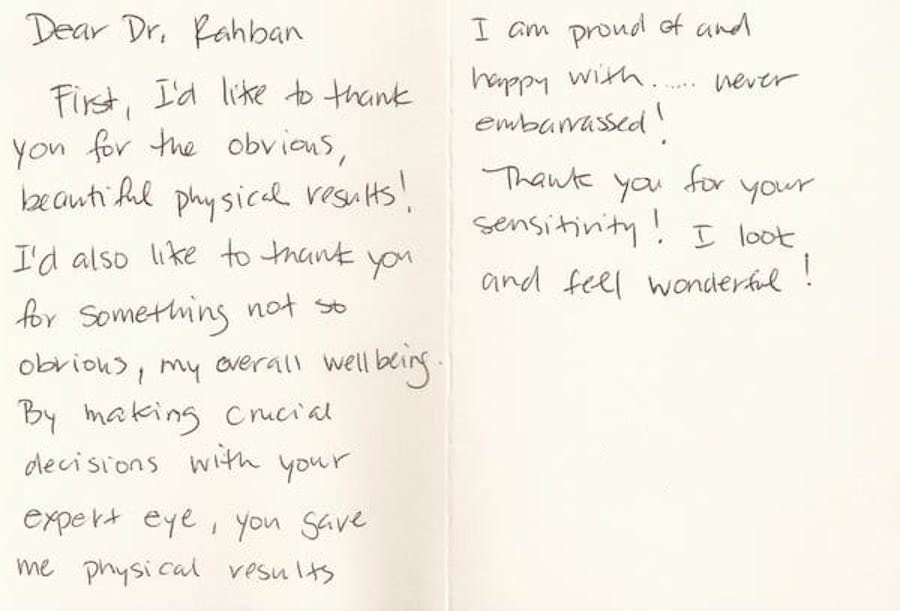 Dear Dr. Rahban
First, I'd like to thank
you for the obvious,
beautiful physical results!
I'd also like to thank you
for something not so
obvious, my overall wellbeing.
By making crucial
decisions with your
expert eye, you gave
me physical results
I am proud of and
happy with...... never
embarrassed!
Thank you for your
sensitivity! I look
and feel wonderful!